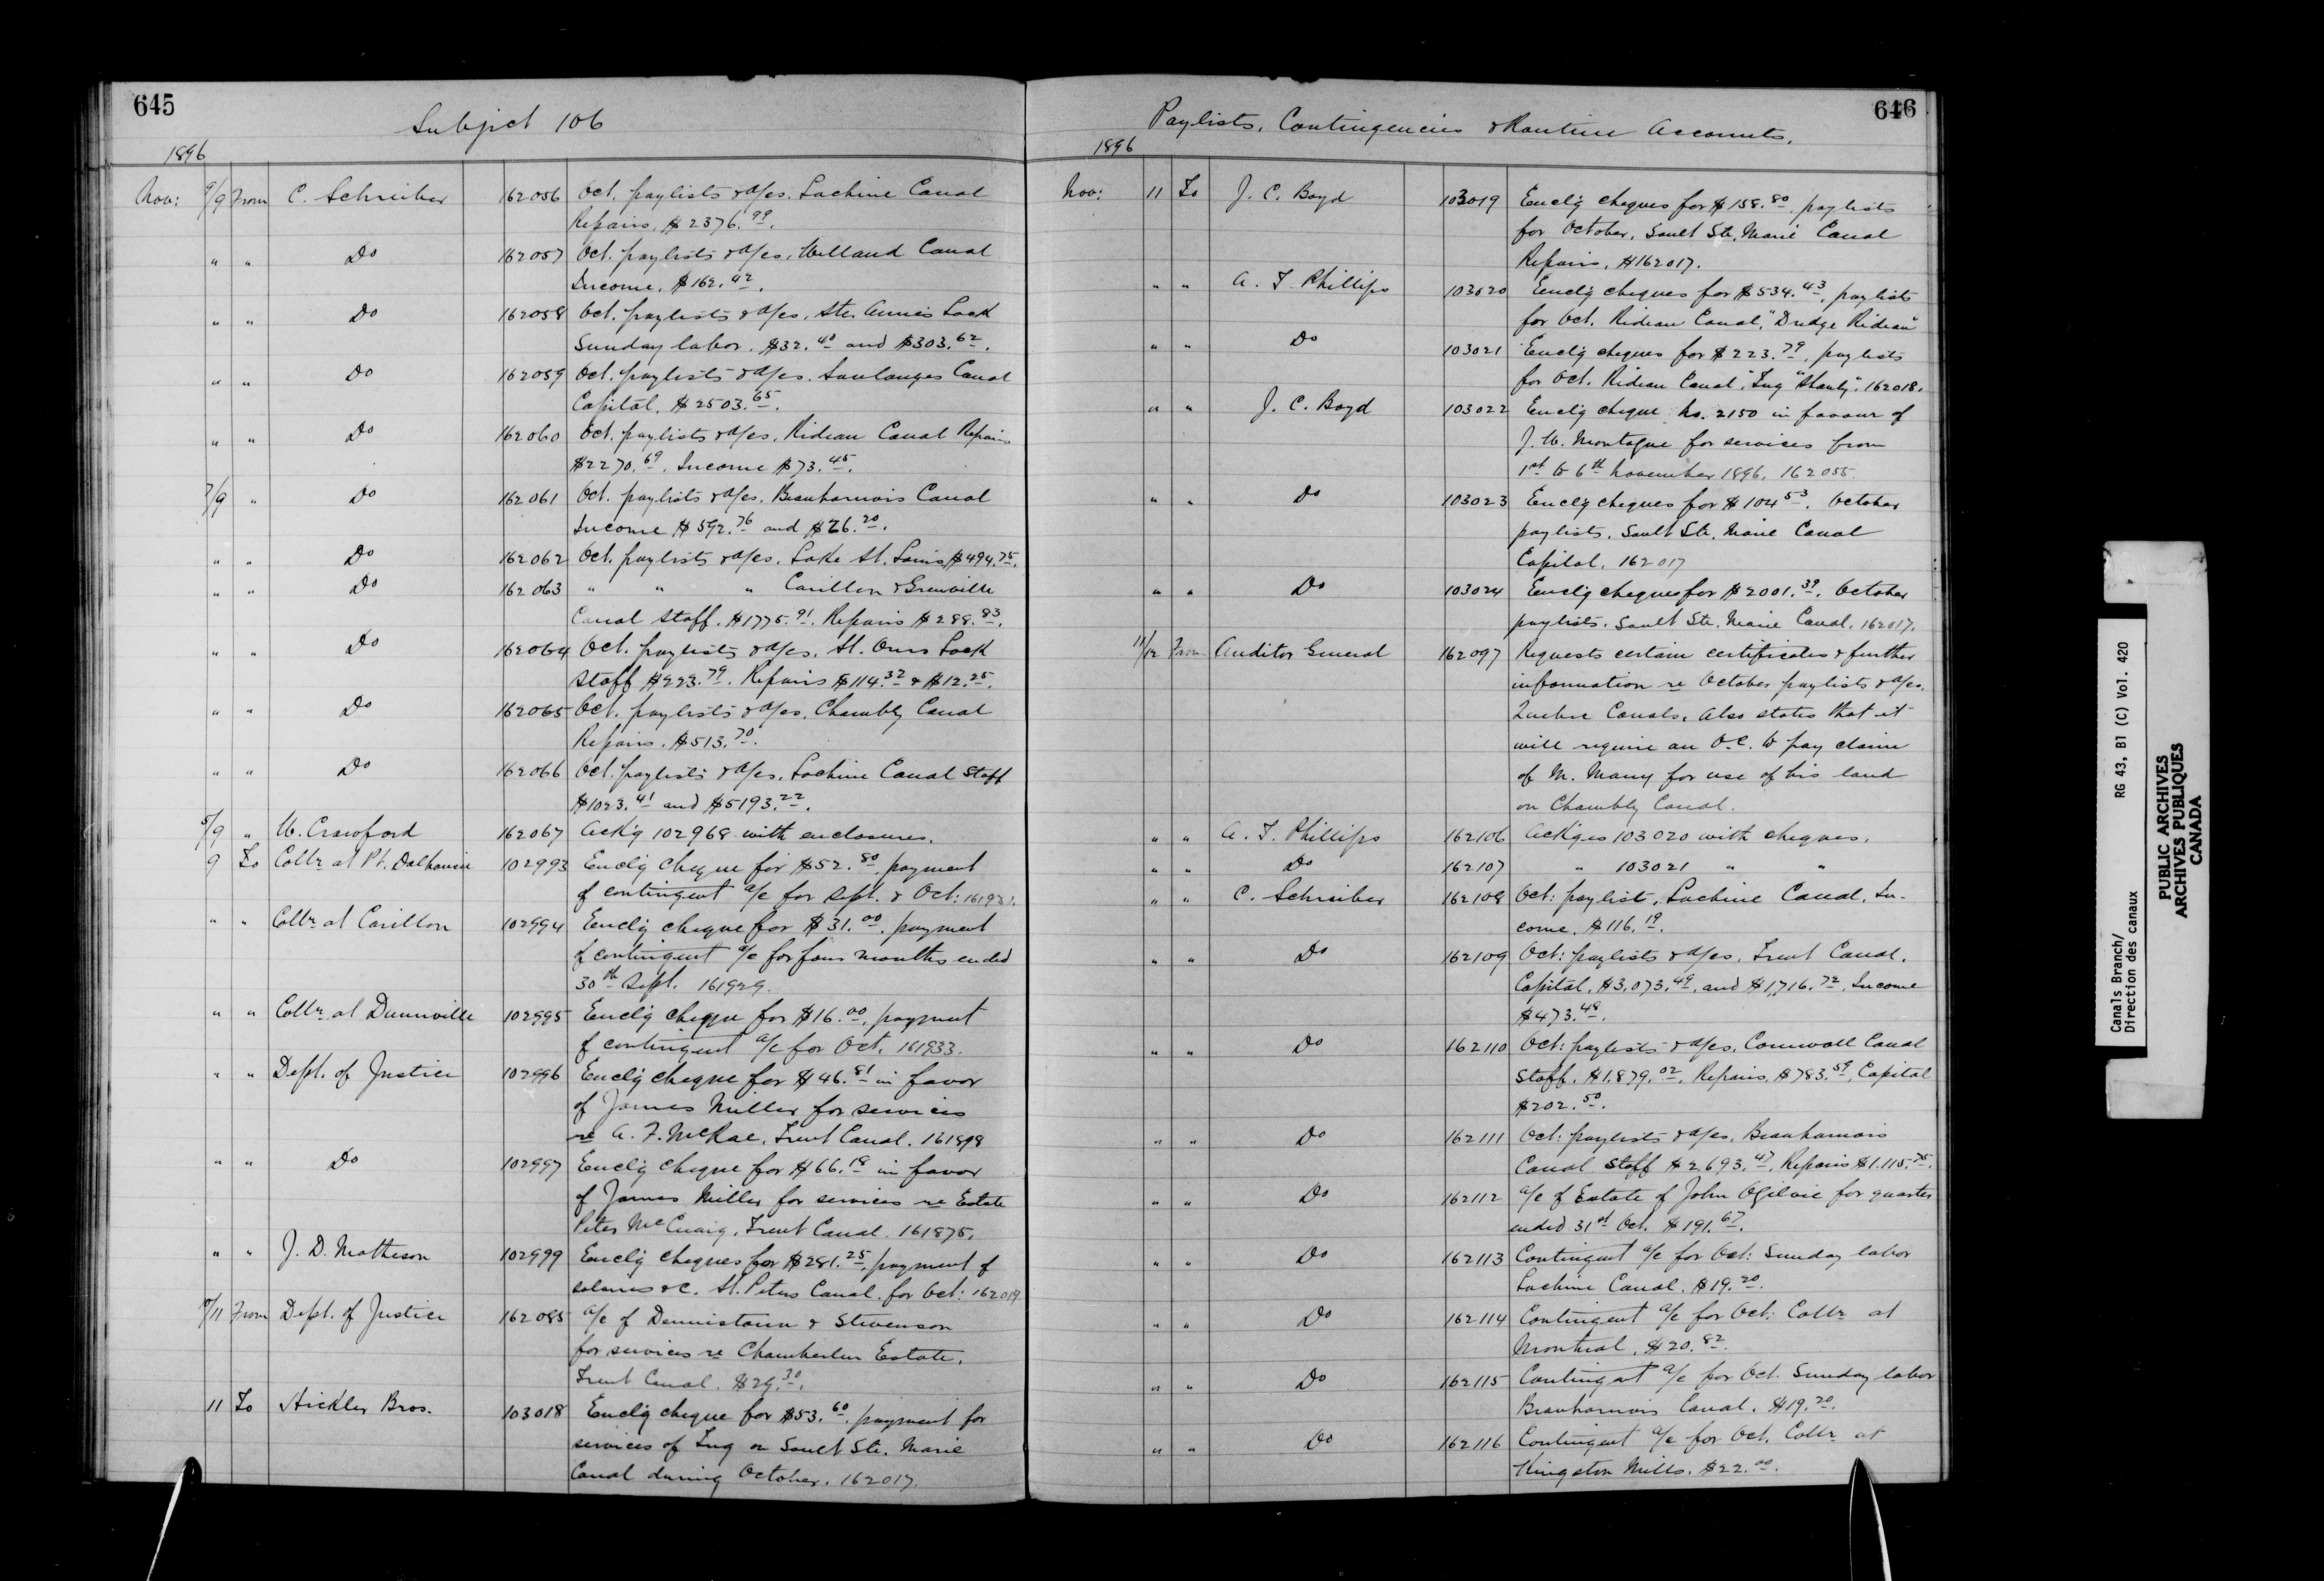 645
Subject 106
1896
Nov: 9/9 From C. Schreiber 162056 Oct. paylists & a/cs. Lachine Canal
Repairs, $2376.99.
" " Do 162057 Oct. paylists & a/cs, Welland Canal
Income, $162.42.
" " Do 162058 Oct. paylists & a/cs, Ste. Annes Lock
Sunday labor, $32.40 and $303.62.
" " Do 162059 Oct. paylists & a/cs. Soulanges Canal
Capital, $2503.65.
" " Do 162060 Oct. paylists & a/cs, Rideau Canal Repairs
$2270.69. Income $73.45.
7/9 " Do 162061 Oct. paylists & a/cs. Beauharnois Canal
Income $592.76 and $26.20.
" " Do 162062 Oct. paylists & a/cs. Lake St. Louis, $494.75.
" " Do 162063 " " " Carillon & Grenville
Canal Staff. $1775.91. Repairs $288.83.
" " Do 162064 Oct. paylists & a/cs, St. Ours Lock
Staff $223.79. Repairs $114.32 & $12.25.
" " Do 162065 Oct. paylists & a/cs, Chambly Canal
Repairs. $513.70.
" " Do 162066 Oct. paylists & a/cs, Lachine Canal Staff
$1023.41 and $5193.22.
5/9 " W. Crawford 162067 Ack'g 102968 with enclosures.
9 To Collr at Pt. Dalhousie 102993 Encl'g cheque for $52.80, payment
of contingent a/c for Sept. & Oct: 161931.
" " Collr at Carillon 102994 Encl'g cheque for $31.00, payment
of contingent a/c for four months ended
30th Sept. 161929.
" " Collr at Dunnville 102995 Encl'g cheque for $16.00, payment
of contingent a/c for Oct. 161933.
" " Dept. of Justice 102996 Encl'g cheque for $46.81 in favor
of James Miller for services
re A. F. McRae, Trent Canal. 161898
" " Do 102997 Encl'g cheque for $66.18 in favor
of James Miller for services re Estate
Peter McCuaig, Trent Canal. 161875.
" " J. D. Matheson 102999 Encl'g cheques for $281.25, payment of
salaries &c. St. Peters Canal. for Oct: 162019
10/11 From Dept. of Justice 162085 a/c of Dennistoun & Stevenson
for services re Chamberlen Estate,
Trent Canal. $29.30.
11 To Hickler Bros. 103018 Encl'g cheque for $53.60, payment for
services of Tug on Sault Ste. Marie
Canal during October. 162017.
646
Paylists, Contingencies & Routine Accounts.
1896
Nov: 11 To J. C. Boyd 103019 Encl'g cheques for $158.80, paylists
for October, Sault Ste. Marie Canal
Repairs, #162017.
" " A. T. Phillips 103020 Encl'g cheques for $534.43, paylists
for Oct. Rideau Canal, "Dredge Rideau"
" " Do 103021 Encl'g cheques for $223.79, paylists
for Oct. Rideau Canal, Tug "Shanly". 162018.
" " J. C. Boyd 103022 Encl'g cheque No. 2150 in favour of
J. W. Montague for services from
1st to 6th November 1896. 162055.
" " Do 103023 Encl'g cheques for $104.53. October
paylists, Sault Ste. Marie Canal
Capital. 162017
" " Do 103024 Encl'g cheques for $2001.39. October
paylists. Sault Ste. Marie Canal. 162017.
11/12 From Auditor General 162097 Requests certain certificates & further
information re October paylists & a/cs.
Quebec Canals. Also states that it
will require an O.C. to pay claim
of M. Many for use of his land
on Chambly Canal.
" " A. T. Phillips 162106 Ack'ges 103020 with cheques.
" " Do 162107 " 103021 " "
" " C. Schreiber 162108 Oct: paylist, Lachine Canal, In-
come. $116.19.
" " Do 162109 Oct: paylists & a/cs, Trent Canal.
Capital, $3,073.49, and $1,716.72, Income
$473.48.
" " Do 162110 Oct: paylists & a/cs. Cornwall Canal
Staff. $1.879.02. Repairs, $783.59, Capital
$202.50.
" " Do 162111 Oct: paylists & a/cs, Beauharnois
Canal Staff $2.693.47, Repairs $1.115.75.
" " Do 162112 a/c of Estate of John Ogilvie for quarter
ended 31st Oct. $191.67.
" " Do 162113 Contingent a/c for Oct: Sunday labor
Lachine Canal. $19.20.
" " Do 162114 Contingent a/c for Oct: Collr at
Montreal, $20.82.
" " Do 162115 Contingent a/c for Oct. Sunday labor
Beauharnois Canal. $19.20.
" " Do 162116 Contingent a/c for Oct. Collr at
Kingston Mills. $22.00.
Canals Branch/ RG 43, B1 (C) Vol. 420
Direction des canaux
PUBLIC ARCHIVES
ARCHIVES PUBLIQUES
CANADA